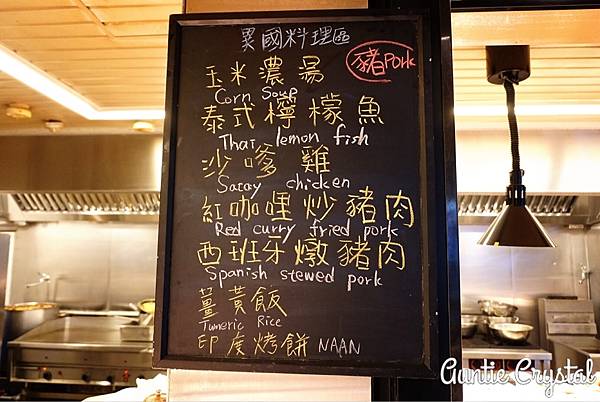 異國料理區
豬 Pork
玉米濃湯
Corn Soup
泰式檸檬魚
Thai lemon fish
沙嗲雞
Satay chicken
紅咖哩炒豬肉
Red curry fried pork
西班牙燉豬肉
Spanish stewed pork
薑黃飯
Tumeric Rice
印度烤餅 NAAN
Auntie Crystal